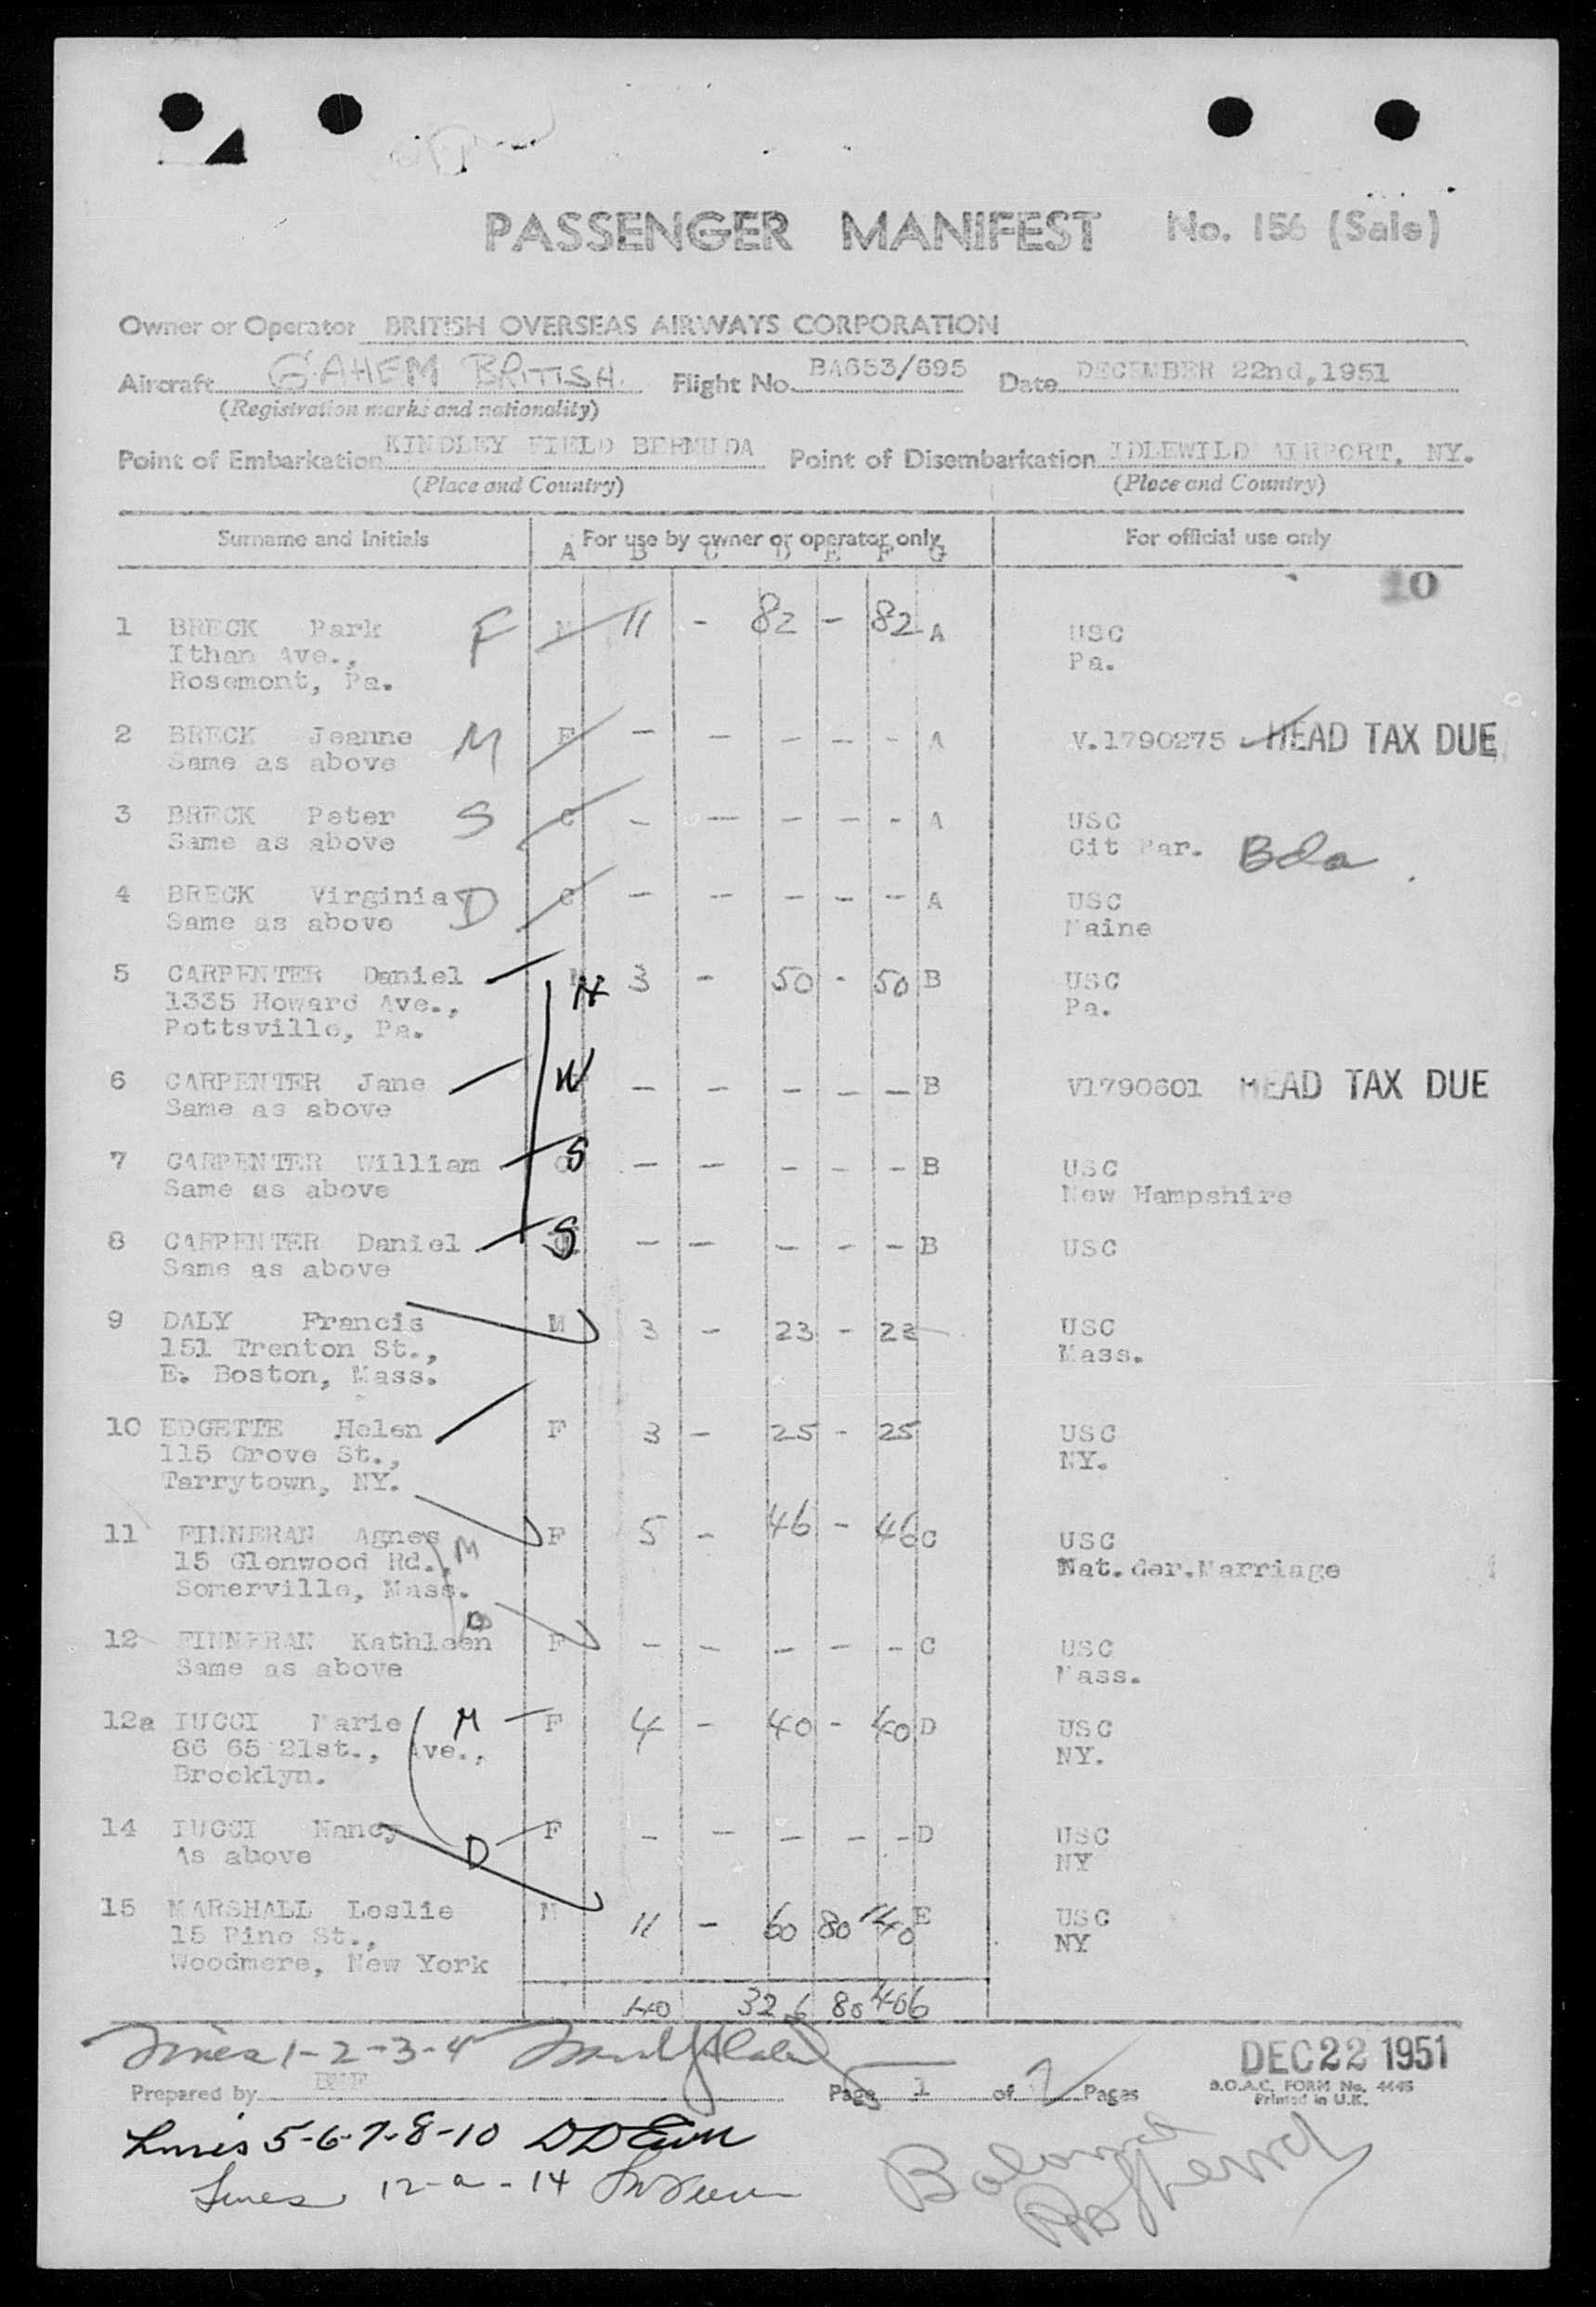 PASSENGER MANIFEST No. 156 (Sale)
Owner or Operator BRITISH OVERSEAS AIRWAYS CORPORATION
Aircraft G.AHEM BRITISH. Flight No. BA653/695 Date DECEMBER 22nd, 1951
(Registration marks and nationality)
Point of Embarkation KINDLEY FIELD BERMUDA Point of Disembarkation IDLEWILD AIRPORT, NY.
(Place and Country) (Place and Country)
Surname and Initials For use by owner or operator only For official use only
A B C D E F G
10
1 BRECK Park F M 11 - 82 - 82 A USC
Ithan Ave., Pa.
Rosemont, Pa.
2 BRECK Jeanne M F - - - - - A V.1790275 HEAD TAX DUE
Same as above
3 BRECK Peter S C - - - - - A USC
Same as above Cit Par. Bda
4 BRECK Virginia D C - - - - - A USC
Same as above Maine
5 CARPENTER Daniel M H 3 - 50 - 50 B USC
1335 Howard Ave., Pa.
Pottsville, Pa.
6 CARPENTER Jane W - - - - - B V1790601 HEAD TAX DUE
Same as above
7 CARPENTER William C S - - - - - B USC
Same as above New Hampshire
8 CARPENTER Daniel S - - - - - B USC
Same as above
9 DALY Francis M 3 - 23 - 23 USC
151 Trenton St., Mass.
E. Boston, Mass.
10 EDGETTE Helen F 3 - 25 - 25 USC
115 Grove St., NY.
Tarrytown, NY.
11 FINNERAN Agnes M F 5 - 46 - 46 C USC
15 Glenwood Rd., Nat.der.Marriage
Somerville, Mass.
12 FINNERAN Kathleen D F - - - - - C USC
Same as above Mass.
12a IUCCI Marie M F 4 - 40 - 40 D USC
86 65 21st., Ave., NY.
Brooklyn.
14 IUCCI Nancy D F - - - - - D USC
As above NY
15 MARSHALL Leslie M 11 - 60 80 140 E USC
15 Pine St., NY
Woodmere, New York
40 326 80 406
Lines 1-2-3-4
DEC 22 1951
Prepared by Page 1 of 2 Pages
B.O.A.C. FORM No. 4445
Printed in U.K.
Lines 5-6-7-8-10
Lines 12-a-14